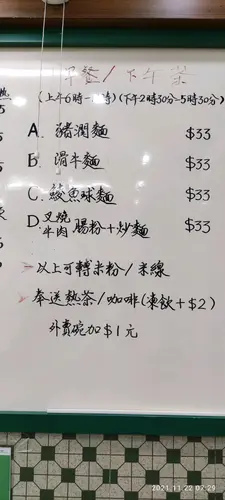 早餐/下午茶
(上午6時-11時)(下午2時30分-5時30分)
A. 豬潤麵 $33
B. 滑牛麵 $33
C. 鯪魚球麵 $33
D. 叉燒 牛肉 腸粉+炒麵 $33
以上可轉米粉/米線
奉送熱茶/咖啡(凍飲+$2)
外賣碗加$1元
2021.11.22 07:29